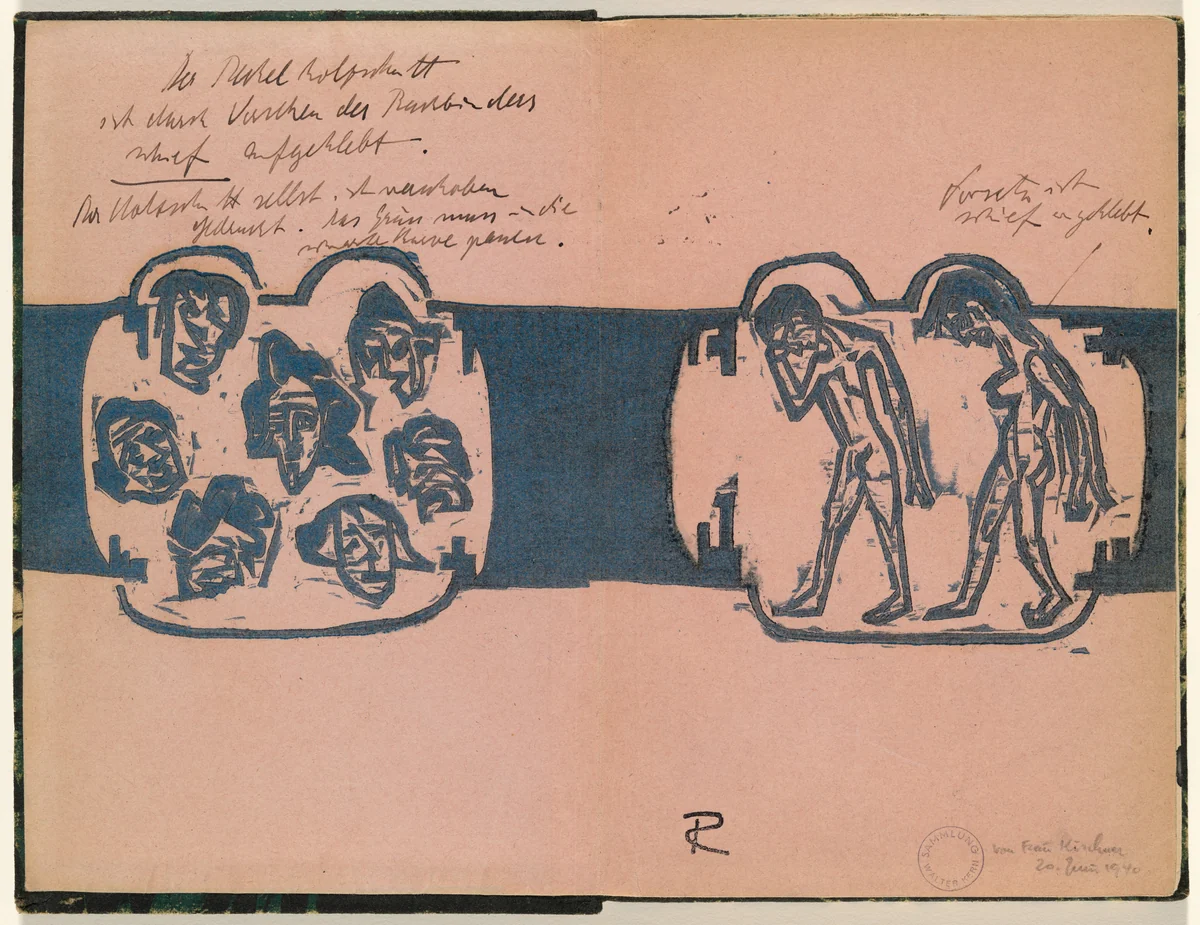 Der Deckel holzschnitt
ist durch Versehen des Buchbinders
schief aufgeklebt.
Der Holzschnitt selbst ist verschoben
gedruckt. Das Grün muss in die
schwarze Kurve passen.
Vorsatz ist
schief angeklebt.
SAMMLUNG
WALTER KERN
von Frau Kirchner
20. Juni 1940